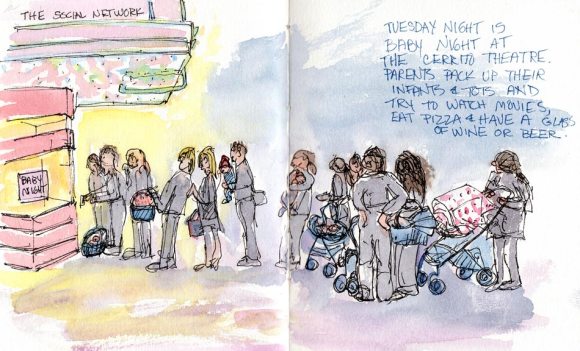 THE SOCIAL NETWORK
TUESDAY NIGHT IS
BABY NIGHT AT
THE CERRITO THEATRE.
PARENTS PACK UP THEIR
INFANTS & TOTS AND
TRY TO WATCH MOVIES,
EAT PIZZA & HAVE A GLASS
OF WINE OR BEER.
BABY
NIGHT